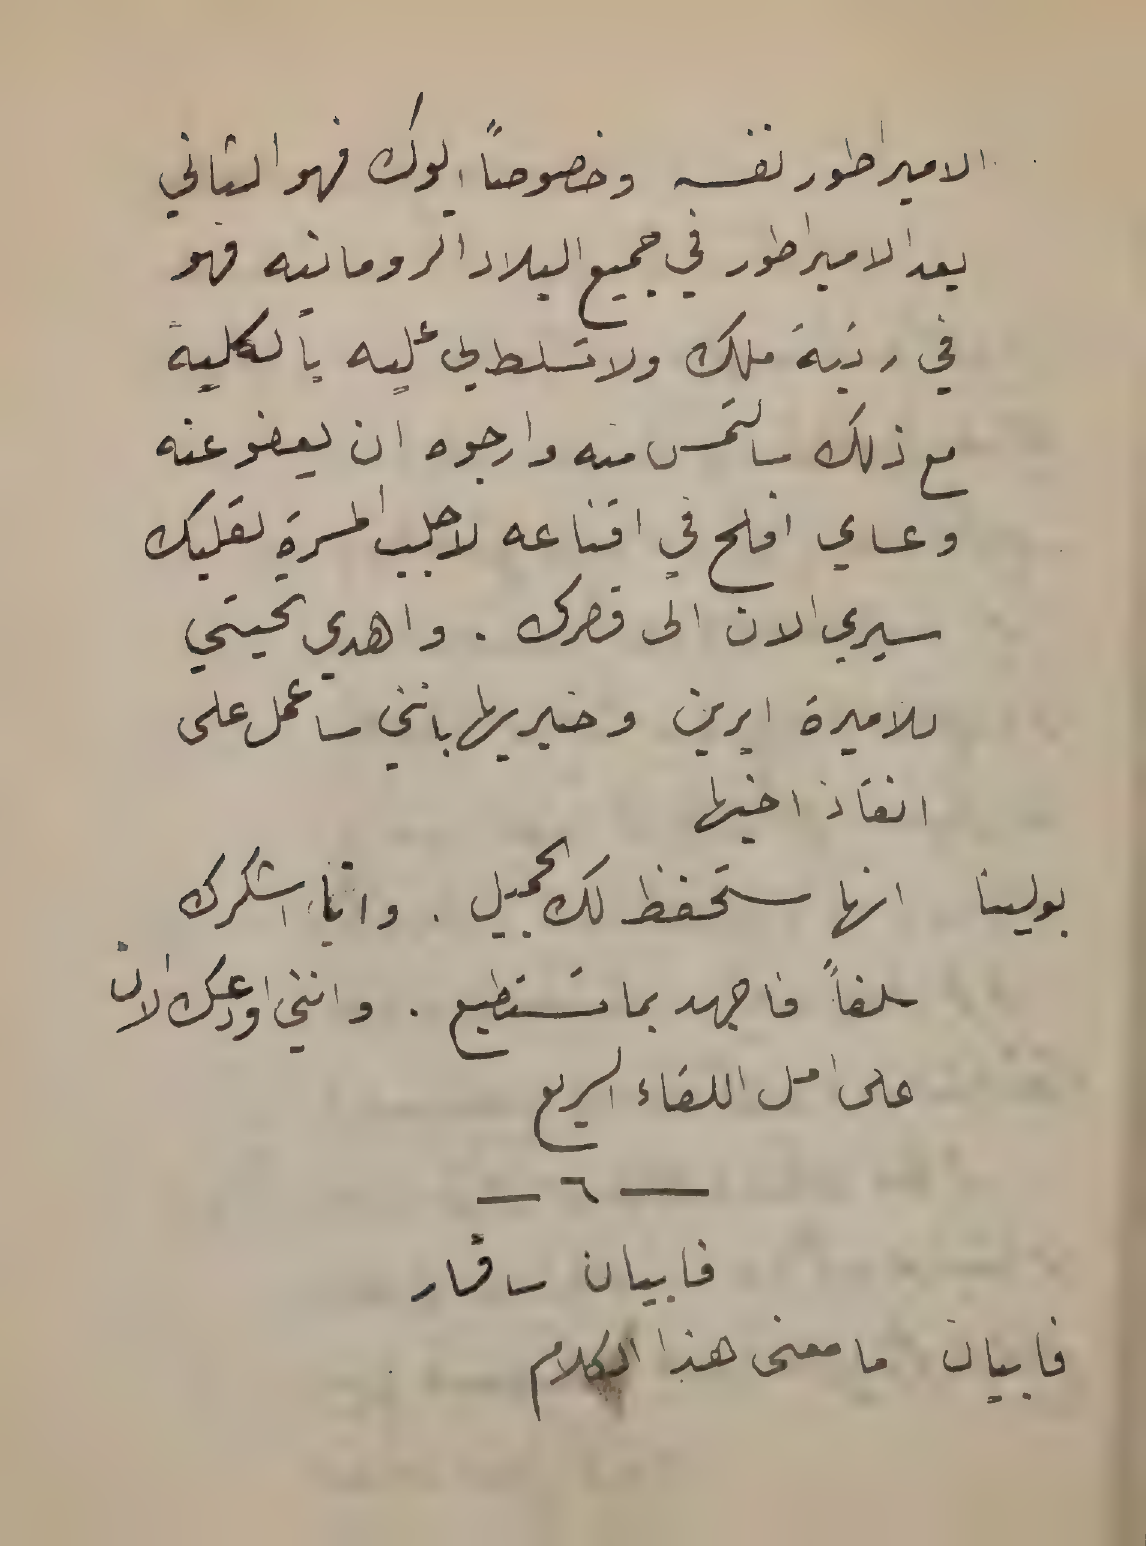 الامبراطور نفسه وخصوصاً ابوك فهو الثاني
بعد الامبراطور في جميع البلاد الرومانيه فهو
في رتبة ملك ولا تسلط لي عليه بالكلية
مع ذلك سالتمس منه وارجوه ان يعفو عنه
وعساي افلح في اقناعه لاجلب المسرة لقلبك
سيري الان الى قصرك . واهدي تحيتي
للاميرة ايرين وخبريها بانني ساعمل على
انقاذ اخيها
بولينا انها ستحفظ لك الجميل . وانا اشكرك
سلفاً فاجهد بما تستطيع . وانني اودعك الان
على امل اللقاء السريع
— ٦ —
فابيان سافار
فابيان ما معنى هذا الكلام